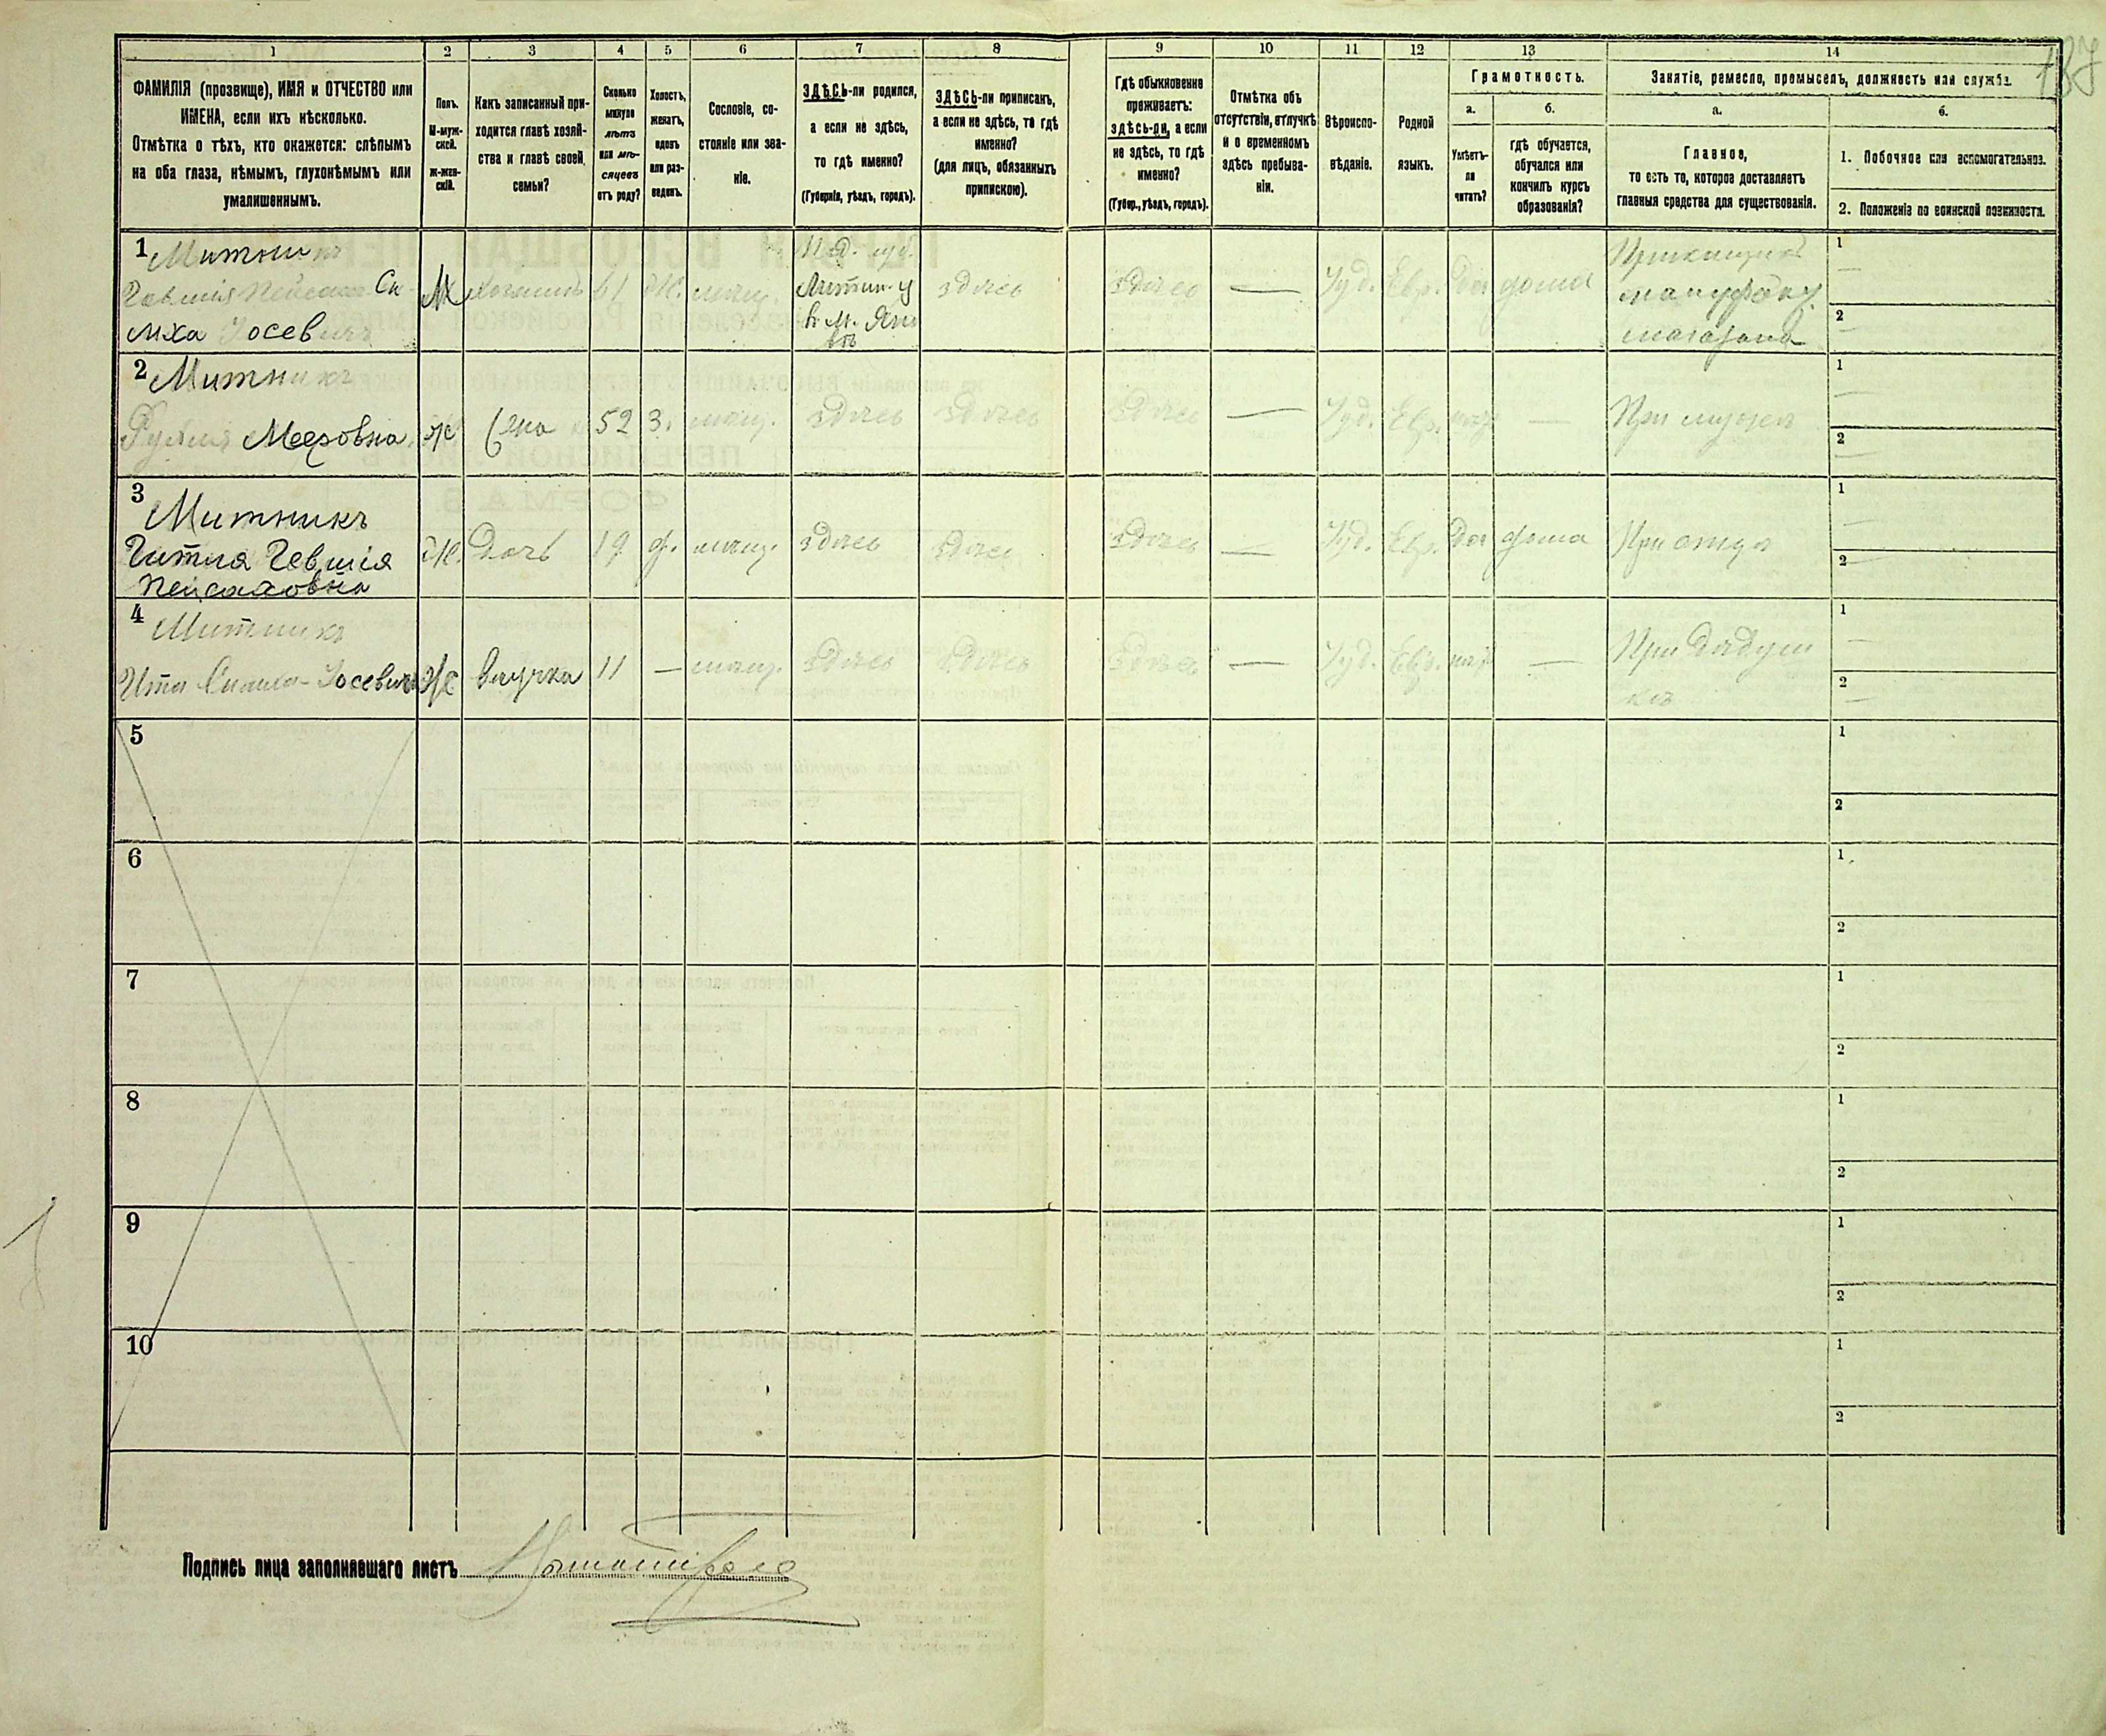 137
1 2 3 4 5 6 7 8 9 10 11 12 13 14
ФАМИЛІЯ (прозвище), ИМЯ и ОТЧЕСТВО или
ИМЕНА, если ихъ нѣсколько.
Отмѣтка о тѣхъ, кто окажется: слѣпымъ
на оба глаза, нѣмымъ, глухонѣмымъ или
умалишеннымъ.
Полъ.
М-муж-
ской.
Ж-жен-
скій.
Какъ записанный при-
ходится главѣ хозяй-
ства и главѣ своей
семьи?
Сколько
минуло
лѣтъ
или мѣ-
сяцевъ
отъ роду?
Холостъ,
женатъ,
вдовъ
или раз-
веденъ.
Сословіе, со-
стояніе или зва-
ніе.
ЗДѢСЬ-ли родился,
а если не здѣсь,
то гдѣ именно?
(Губернія, уѣздъ, городъ).
ЗДѢСЬ-ли приписанъ,
а если не здѣсь, то гдѣ
именно?
(для лицъ, обязанныхъ
припискою).
Гдѣ обыкновенно
проживаетъ:
здѣсь-ли, а если
не здѣсь, то гдѣ
именно?
(Губер., уѣздъ, городъ).
Отмѣтка объ
отсутствіи, отлучкѣ
и о временномъ
здѣсь пребыва-
ніи.
Вѣроиспо-
вѣданіе.
Родной
языкъ.
Грамотность.
а.
Умѣетъ-
ли
читать?
б.
гдѣ обучается,
обучался или
кончилъ курсъ
образованія?
Занятіе, ремесло, промыселъ, должность или служба.
а.
Главное,
то есть то, которое доставляетъ
главныя средства для существованія.
б.
1. Побочное или вспомогательное.
2. Положеніе по воинской повинности.
1 Митникъ
Гевшія Пейсахъ Си-
миха Іосевичъ
М хозяинъ 61 Ж. мѣщ.
Под. губ.
Литин. у
в м. Яно
вѣ
здѣсь здѣсь — Іуд. Евр. да дома
Прикащикъ
мануфак
магазина
1 —
2 —
2 Митникъ
Мееровна ж 52 З. мѣщ. здѣсь здѣсь здѣсь — Іуд. Евр. нѣтъ — При мужѣ
1 —
2 —
3 Митникъ
Гитля Гевшія
Пейсаховна
Ж. Дочь 19 д. мѣщ. здѣсь здѣсь здѣсь — Іуд. Евр. да дома При отцѣ
1 —
2 —
4 Митникъ
Ита Іосевич ж внучка 11 — мѣщ. здѣсь здѣсь здѣсь — Іуд. Евр. нѣтъ —
При дѣдуш
кѣ
1 —
2 —
5 1
2
6 1
2
7 1
2
8 1
2
9 1
2
10 1
2
Подпись лица заполнявшаго листъ